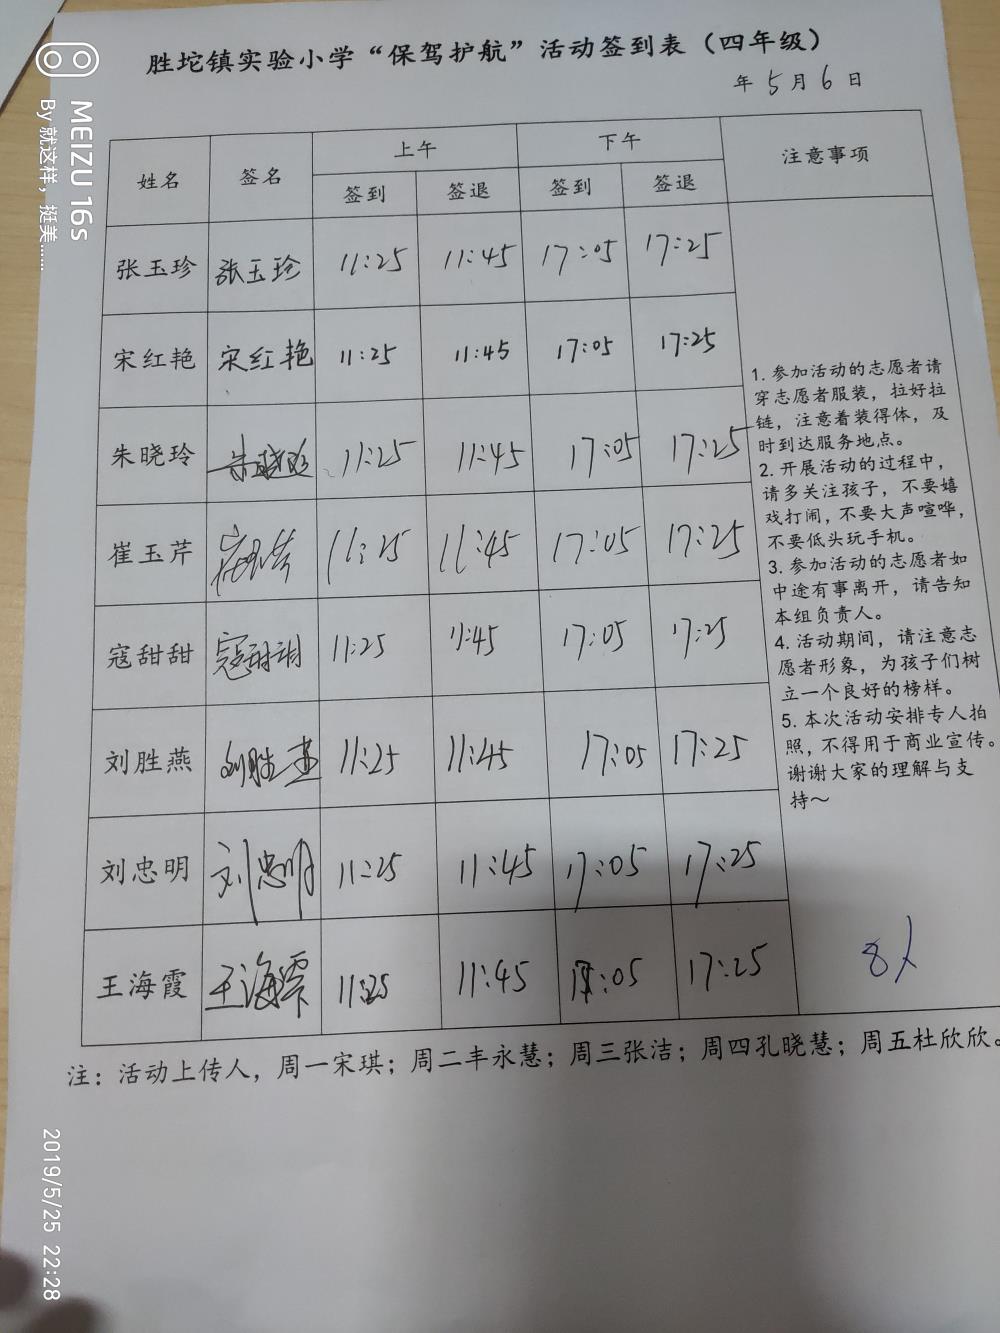 胜坨镇实验小学“保驾护航”活动签到表（四年级）
年 5 月 6 日
姓名 签名 上午 下午 注意事项
签到 签退 签到 签退
张玉珍 张玉珍 11:25 11:45 17:05 17:25
宋红艳 宋红艳 11:25 11:45 17:05 17:25
朱晓玲 朱晓玲 11:25 11:45 17:05 17:25
崔玉芹 崔玉芹 11:25 11:45 17:05 17:25
寇甜甜 寇甜甜 11:25 11:45 17:05 17:25
刘胜燕 刘胜燕 11:25 11:45 17:05 17:25
刘忠明 刘忠明 11:25 11:45 17:05 17:25
王海霞 王海霞 11:25 11:45 17:05 17:25
1. 参加活动的志愿者请
穿志愿者服装，拉好拉
链，注意着装得体，及
时到达服务地点。
2. 开展活动的过程中，
请多关注孩子，不要嬉
戏打闹，不要大声喧哗，
不要低头玩手机。
3. 参加活动的志愿者如
中途有事离开，请告知
本组负责人。
4. 活动期间，请注意志
愿者形象，为孩子们树
立一个良好的榜样。
5. 本次活动安排专人拍
照，不得用于商业宣传。
谢谢大家的理解与支
持～
8人
注：活动上传人，周一宋琪；周二丰永慧；周三张洁；周四孔晓慧；周五杜欣欣。
MEIZU 16s
By 就这样，挺美......
2019/5/25 22:28